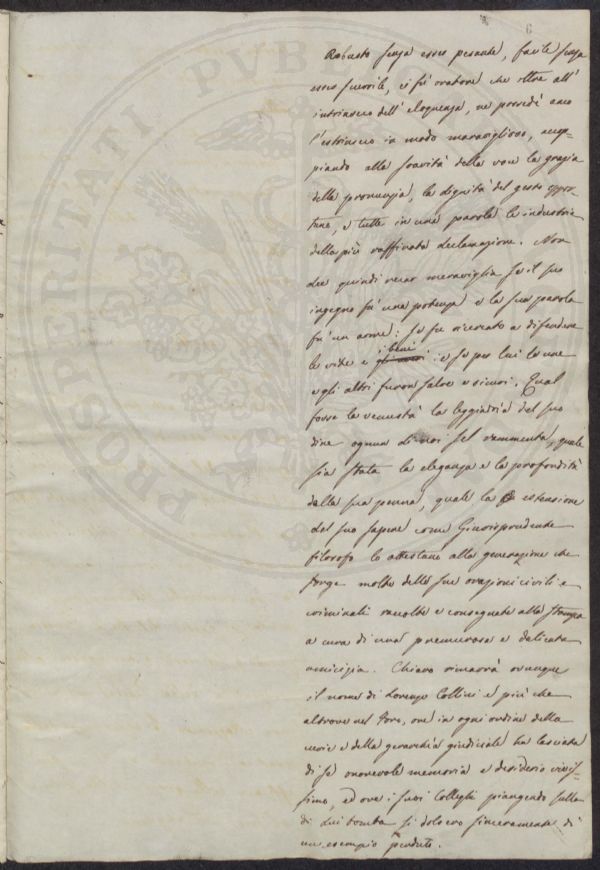 6
Robusto senza esser pesante, facile senza
esser scurrile, ei fu oratore che oltre all'
intrinseco dell'eloquenza, ne possedé anco
l'estrinseco in modo maraviglioso, accop-
piando alla soavità della voce la grazia
della pronunzia, la dignità del gesto oppor-
tuno, e tutte in una parola le industrie
della più raffinata declamazione. Non
dee quindi recar maraviglia se il suo
ingegno fu una potenza e la sua parola
fu un arme: se fu ricercato a difendere
le vite e i beni: e se per lui le une
e gli altri furon salve e sicuri. Qual
fosse la venustà la leggiadria del suo
dire ognun di noi sel rammenta, quale
sia stata la eleganza e la profondità
della sua penna, quale la estensione
del suo sapere come Giurisprudente
filosofo lo attestano alla generazione che
sorge molte delle sue orazioni civili e
criminali raccolte e consegnate alla stampa
a cura di una premurosa e delicata
amicizia. Chiaro rimarrà ovunque
il nome di Lorenzo Collini e più che
altrove nel foro, ove in ogni ordine della
curia e della gerarchia giudiciale ha lasciata
di se onorevole memoria e desiderio vivis-
simo, ed ove i suoi Colleghi piangendo sulla
di lui tomba si dolsero sinceramente di
un esempio perduto.
PROSPERITATI PUBLICAE